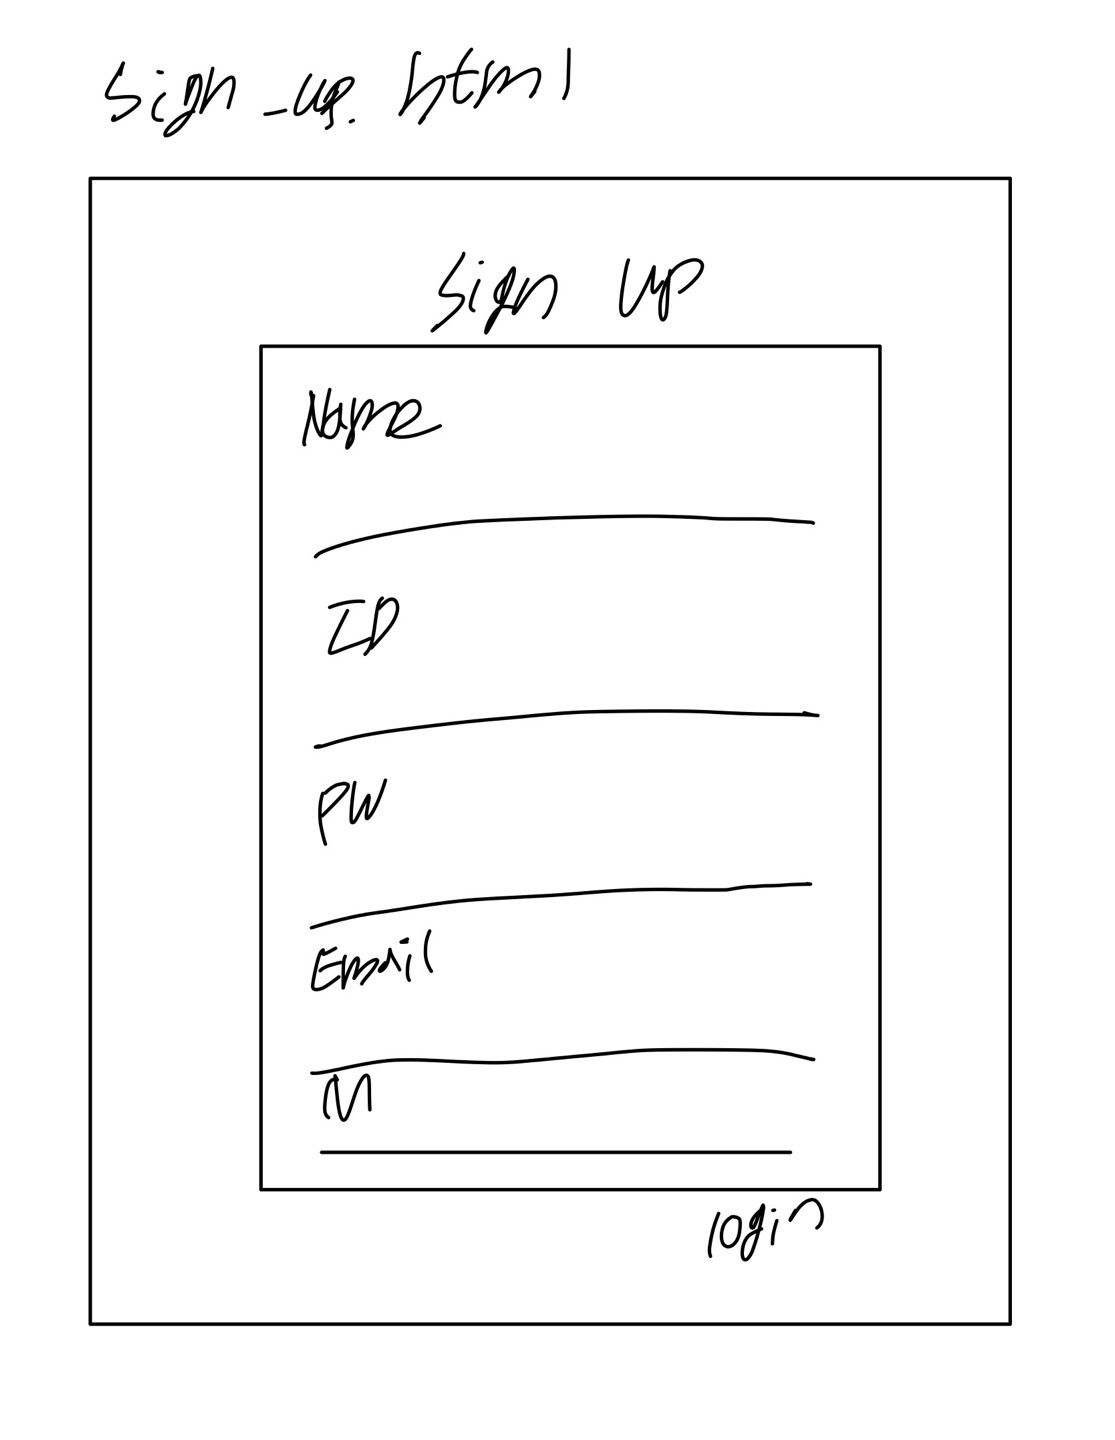 sign_up.html
Sign Up
Name
ID
PW
Email
M
login